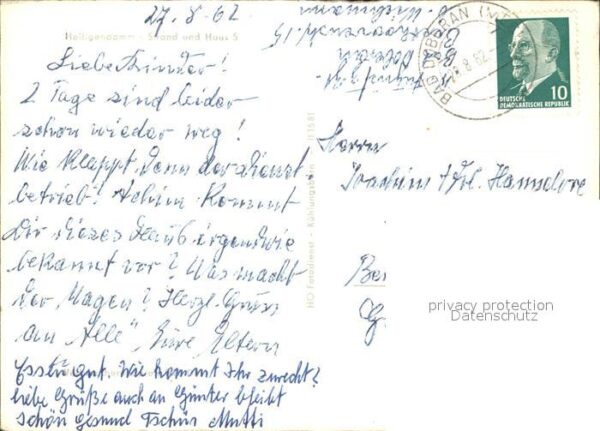 27.8.62
Heiligendamm - Strand und Haus 5
Liebe Kinder!
2 Tage sind leider
schon wieder weg!
Wie klappt denn der Dienst-
betrieb! Achim kommt
Dir dieses Haus irgendwie
bekannt vor? Was macht
der Magen? Herzl. Gruss
an "Alle" Eure Eltern
Essen gut. Wie kommt Ihr zurecht?
liebe Grüße auch an Günter bleibt
schön gesund Tschüs Mutti
HO Fotodienst - Kühlungsborn
BAD DOBERAN
10
DEUTSCHE
DEMOKRATISCHE REPUBLIK
Herrn
Joachim + Frl. Hannelore
Ber
G
privacy protection
Datenschutz